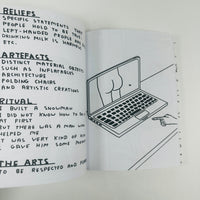 BELIEFS
SPECIFIC STATEMENTS THAT
PEOPLE HOLD TO BE TRUE
LEFT-HANDED PEOPLE
DRINKING MILK IS HARMFUL
ETC.
ARTEFACTS
DISTINCT MATERIAL OBJECTS
SUCH AS INFLATABLES
ARCHITECTURE
FOLDING CHAIRS
AND ARTISTIC CREATIONS
RITUAL
I BUILT A SNOWMAN
I DID NOT KNOW HOW TO DO
AT FIRST
BUT THERE WAS A MAN WHO
HELPED ME
IT WAS VERY KIND OF HIM
I GAVE HIM SOME
THE ARTS
TO BE RESPECTED AND